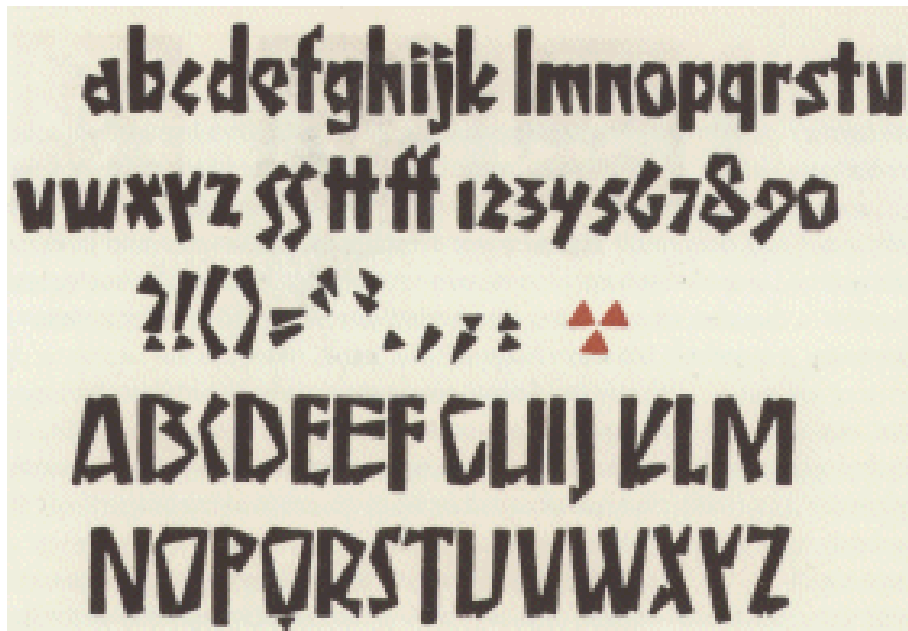 abcdefghijk lmnopqrstu
vwxyz ss tt ff 1234567890
?!()=“ ” . , ; :
ABCDEEF GUIJ KLM
NOPQRSTUVWXYZ